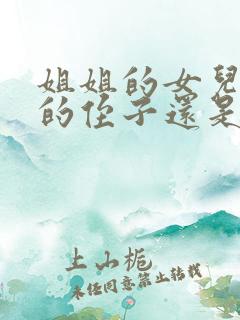 姐姐的女兒
的侄子還是
上山梔
未經同意禁止轉載